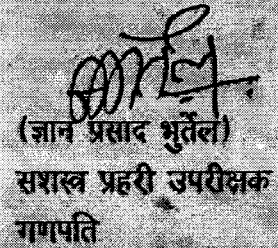 (ज्ञान प्रसाद भुर्तेल)
सशस्त्र प्रहरी उपरीक्षक
गणपति